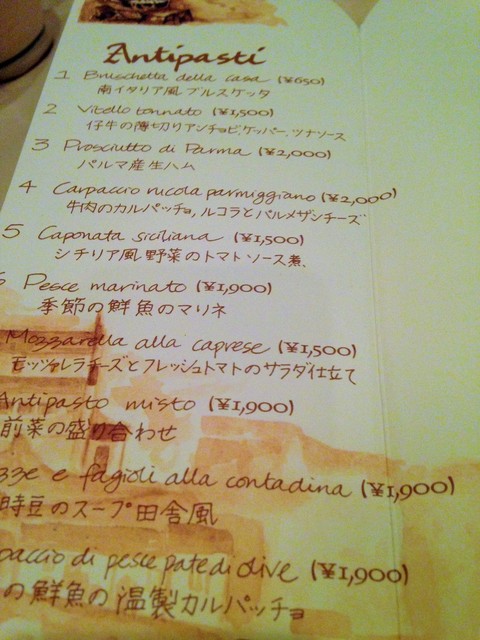 Antipasti
1 Bruschetta della casa (¥650)
南イタリア風ブルスケッタ
2 Vitello tonnato (¥1,500)
仔牛の薄切りアンチョビ、ケッパー、ツナソース
3 Prosciutto di Parma (¥2,000)
パルマ産生ハム
4 Carpaccio rucola parmiggiano (¥2,000)
牛肉のカルパッチョ,ルコラとパルメザンチーズ
5 Caponata siciliana (¥1,500)
シチリア風野菜のトマトソース煮、
6 Pesce marinato (¥1,900)
季節の鮮魚のマリネ
Mozzarella alla caprese (¥1,500)
モッツァレラチーズとフレッシュトマトのサラダ仕立て
Antipasto misto (¥1,900)
前菜の盛り合わせ
zze e fagioli alla contadina (¥1,900)
時豆のスープ田舎風
paccio di pesce patedi olive (¥1,900)
の鮮魚の温製カルパッチョ